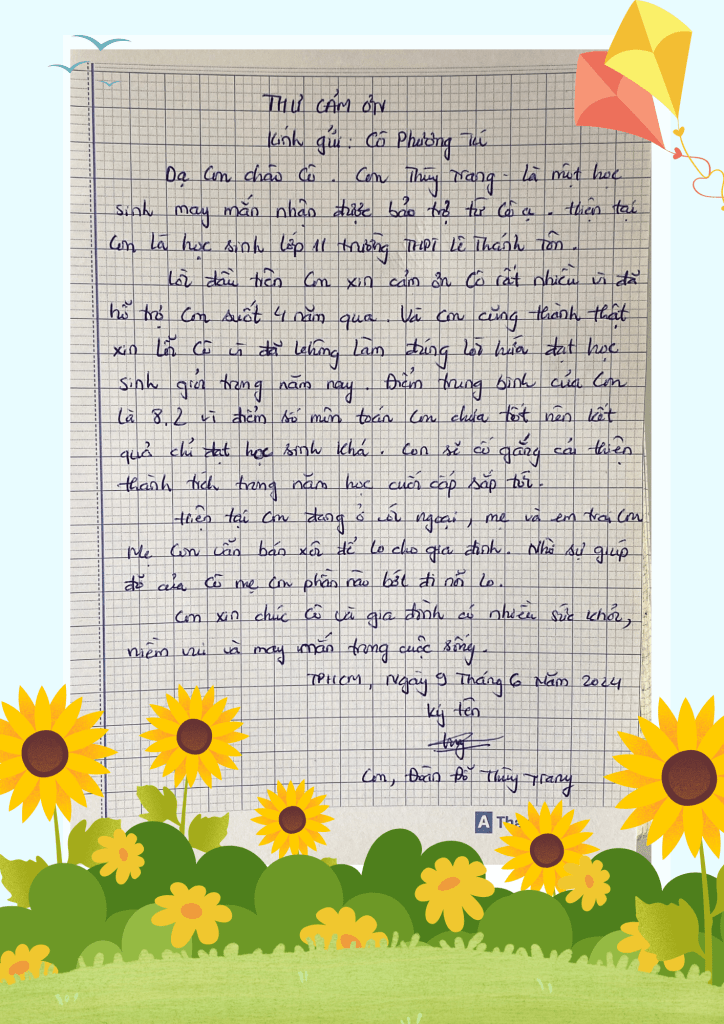 THƯ CẢM ƠN
Kính gửi: Cô Phương Tú
Dạ Con chào Cô. Con Thùy Trang - là một học
sinh may mắn nhận được bảo trợ từ Cô ạ. Hiện tại
Con là học sinh lớp 11 trường THPT Lê Thánh Tôn.
Lời đầu tiên Con xin cảm ơn Cô rất nhiều vì đã
hỗ trợ Con suốt 4 năm qua. Và Con cũng thành thật
xin lỗi Cô vì đã không làm đúng lời hứa đạt học
sinh giỏi trong năm nay. Điểm trung bình của Con
là 8.2 vì điểm số môn toán Con chưa tốt nên kết
quả chỉ đạt học sinh khá. Con sẽ cố gắng cải thiện
thành tích trong năm học cuối cấp sắp tới.
Hiện tại Con đang ở với ngoại, mẹ và em trai Con
Mẹ Con vẫn bán xôi để lo cho gia đình. Nhờ sự giúp
đỡ của Cô mẹ Con phần nào bớt đi nỗi lo.
Con xin chúc Cô và gia đình có nhiều sức khỏe,
niềm vui và may mắn trong cuộc sống.
TPHCM, Ngày 9 Tháng 6 Năm 2024
Ký tên
Con, Đoàn Đỗ Thùy Trang
A